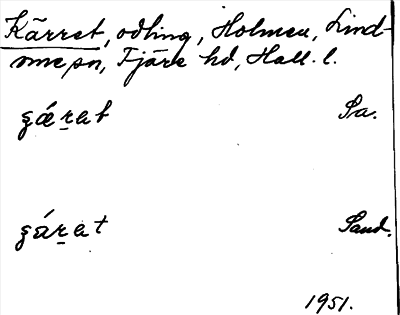 Kärret, odling, Holmen, Lind-
men sn, Fjäre hd, Hall. l.
ʂǽr̲ət Sa.
ʂár̲ət Sand.
1951.